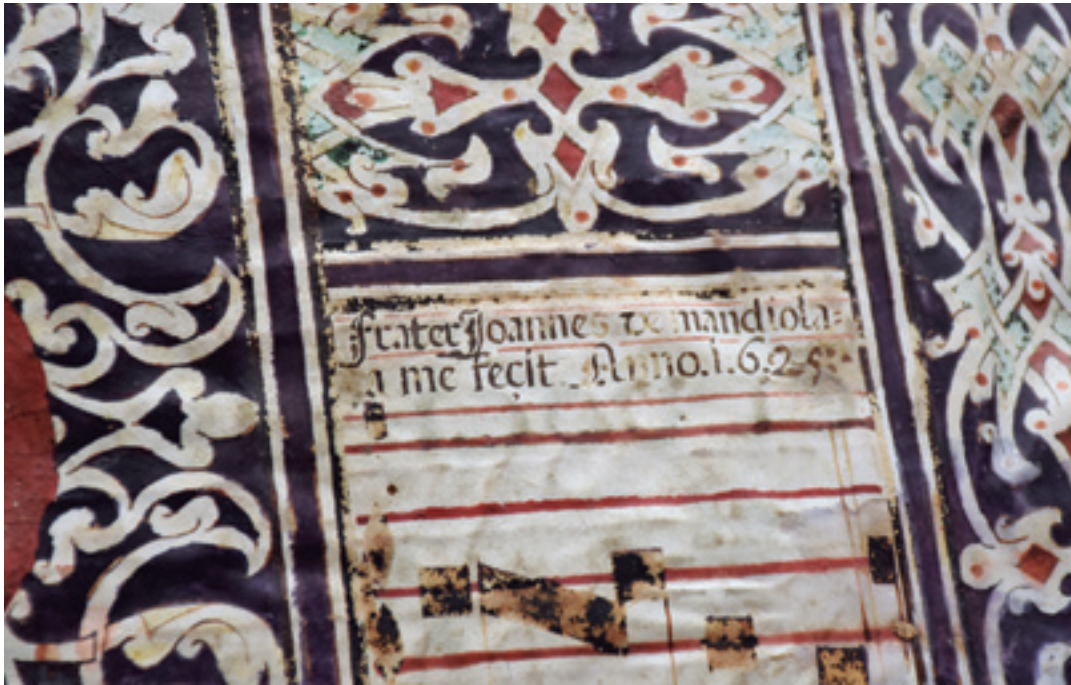 Frater Joannes de mandiola:
a me fecit. Anno. 1.6.2.5: